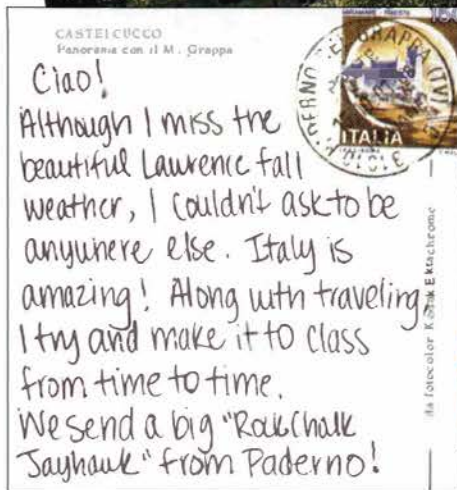 CASTELCUCCO
Panorama con il M. Grappa
Ciao!
Although I miss the
beautiful Lawrence fall
weather, I couldn't ask to be
anywhere else. Italy is
amazing! Along with traveling,
I try and make it to class
from time to time.
We send a big "Rock Chalk
Jayhawk" from Paderno!
ITALIA
da fotocolor Kodak Ektachrome